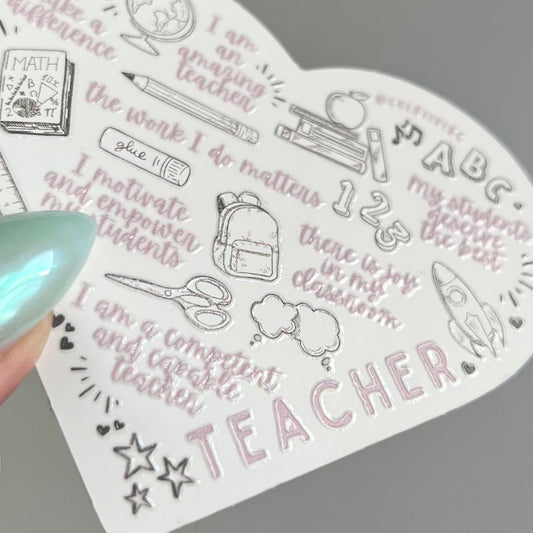 make a
difference
I am
an
amazing
teacher
MATH
the work I do matters
glue
ABC
123
I motivate
and empower
my students
My students
deserve
the best
there is joy
in my
classroom
I am a competent
and capable
teacher
TEACHER